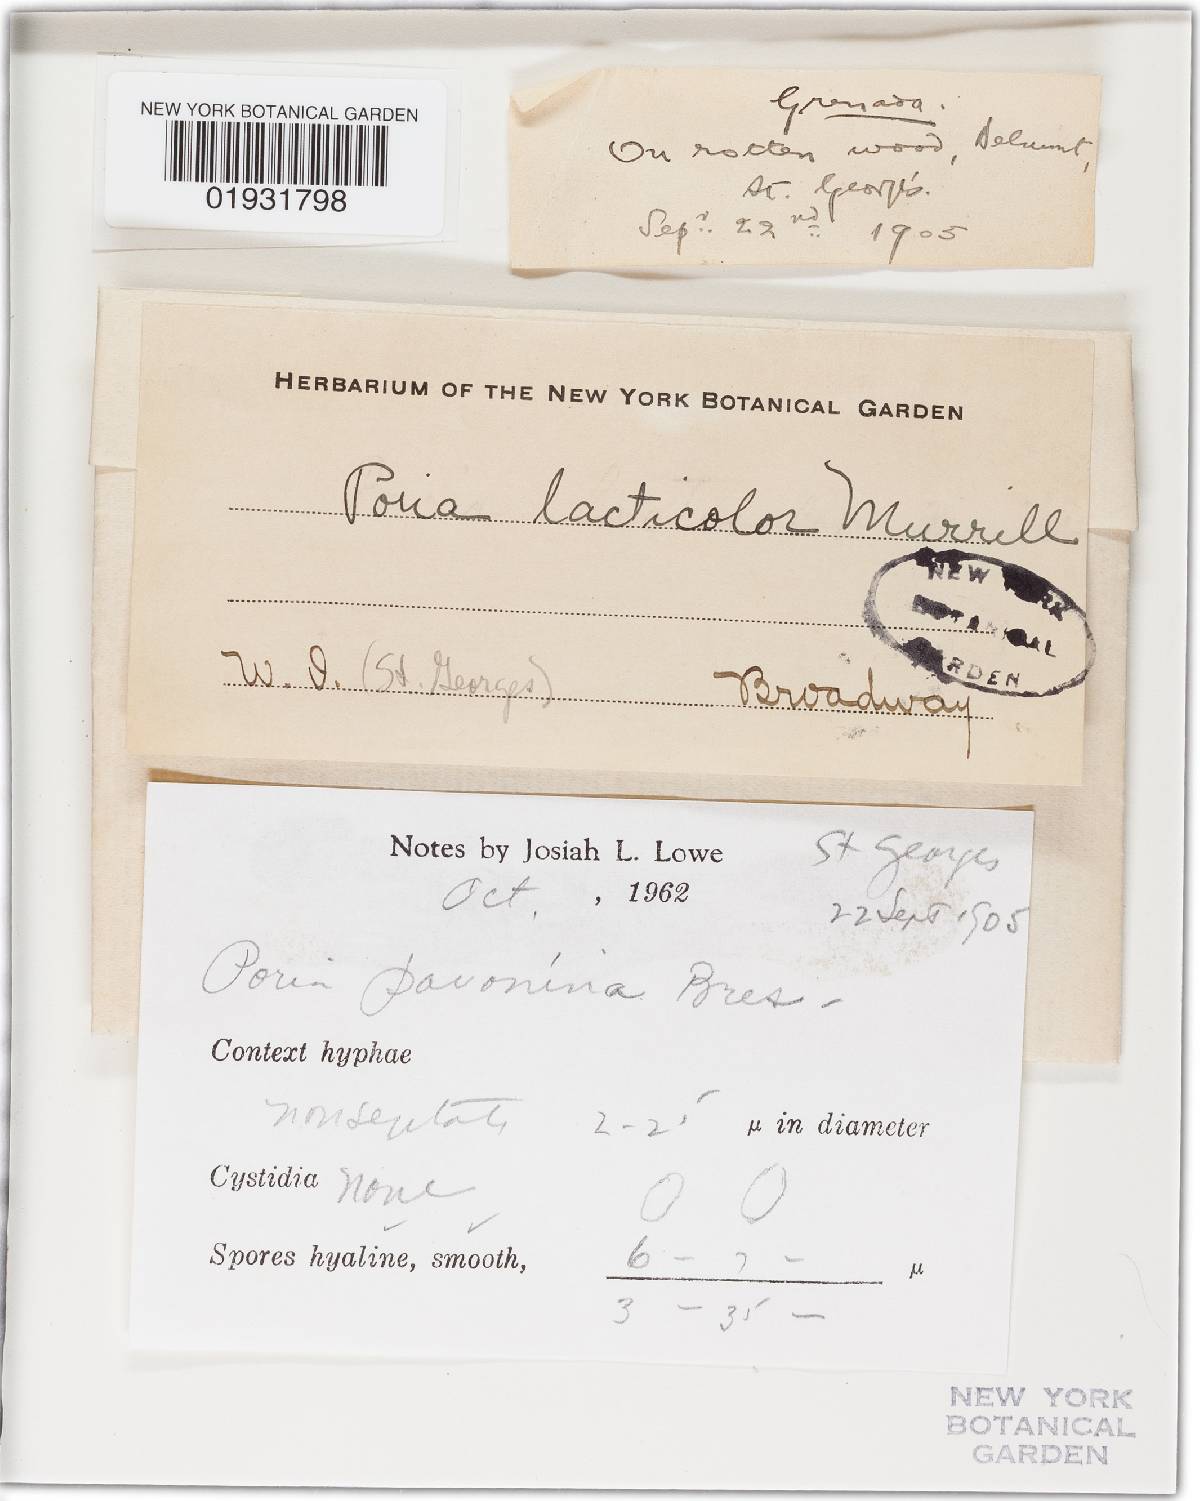 NEW YORK BOTANICAL GARDEN
01931798
Grenada.
On rotten wood, Belmont,
St. George's.
Sepr. 22nd 1905
HERBARIUM OF THE NEW YORK BOTANICAL GARDEN
Poria lacticolor Murrill
NEW YORK
BOTANICAL
GARDEN
W. I. (St. Georges)
Broadway
Notes by Josiah L. Lowe
Oct. , 1962
St Georges
22 Sept 1905
Poria pavonina Bres -
Context hyphae
nonseptate 2-2 5 μ in diameter
Cystidia none
Spores hyaline, smooth, 6 - 7 - μ
3 - 35 -
NEW YORK
BOTANICAL
GARDEN